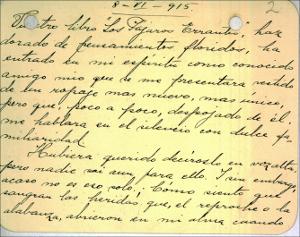 8-VI-915.
2
Vuestro libro "Los Pájaros Errantes", haz
dorado de pensamientos floridos, ha
entrado en mi espíritu como conocido
amigo mío que se me presentara vestido
de un ropaje mas nuevo, mas único,
pero que, poco a poco, despojado de él,
me hablara en el silencio con dulce fa-
miliaridad.
Hubiera querido decíroslo en voz alta,
pero nadie soi aun para ello. I sin embargo
acaso no es eso solo; ¡Cómo siento que
sangran las heridas que, el reproche o la
alabanza, abrieron en mi alma cuando